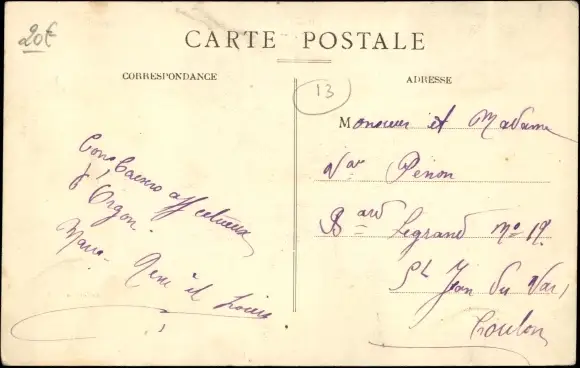 20€
CARTE POSTALE
CORRESPONDANCE
ADRESSE
13
Monsieur et Madame
Penon
Bard Legrand No 19.
St Jean du Var,
Toulon
affectueux
d'Orgon.
et Louis